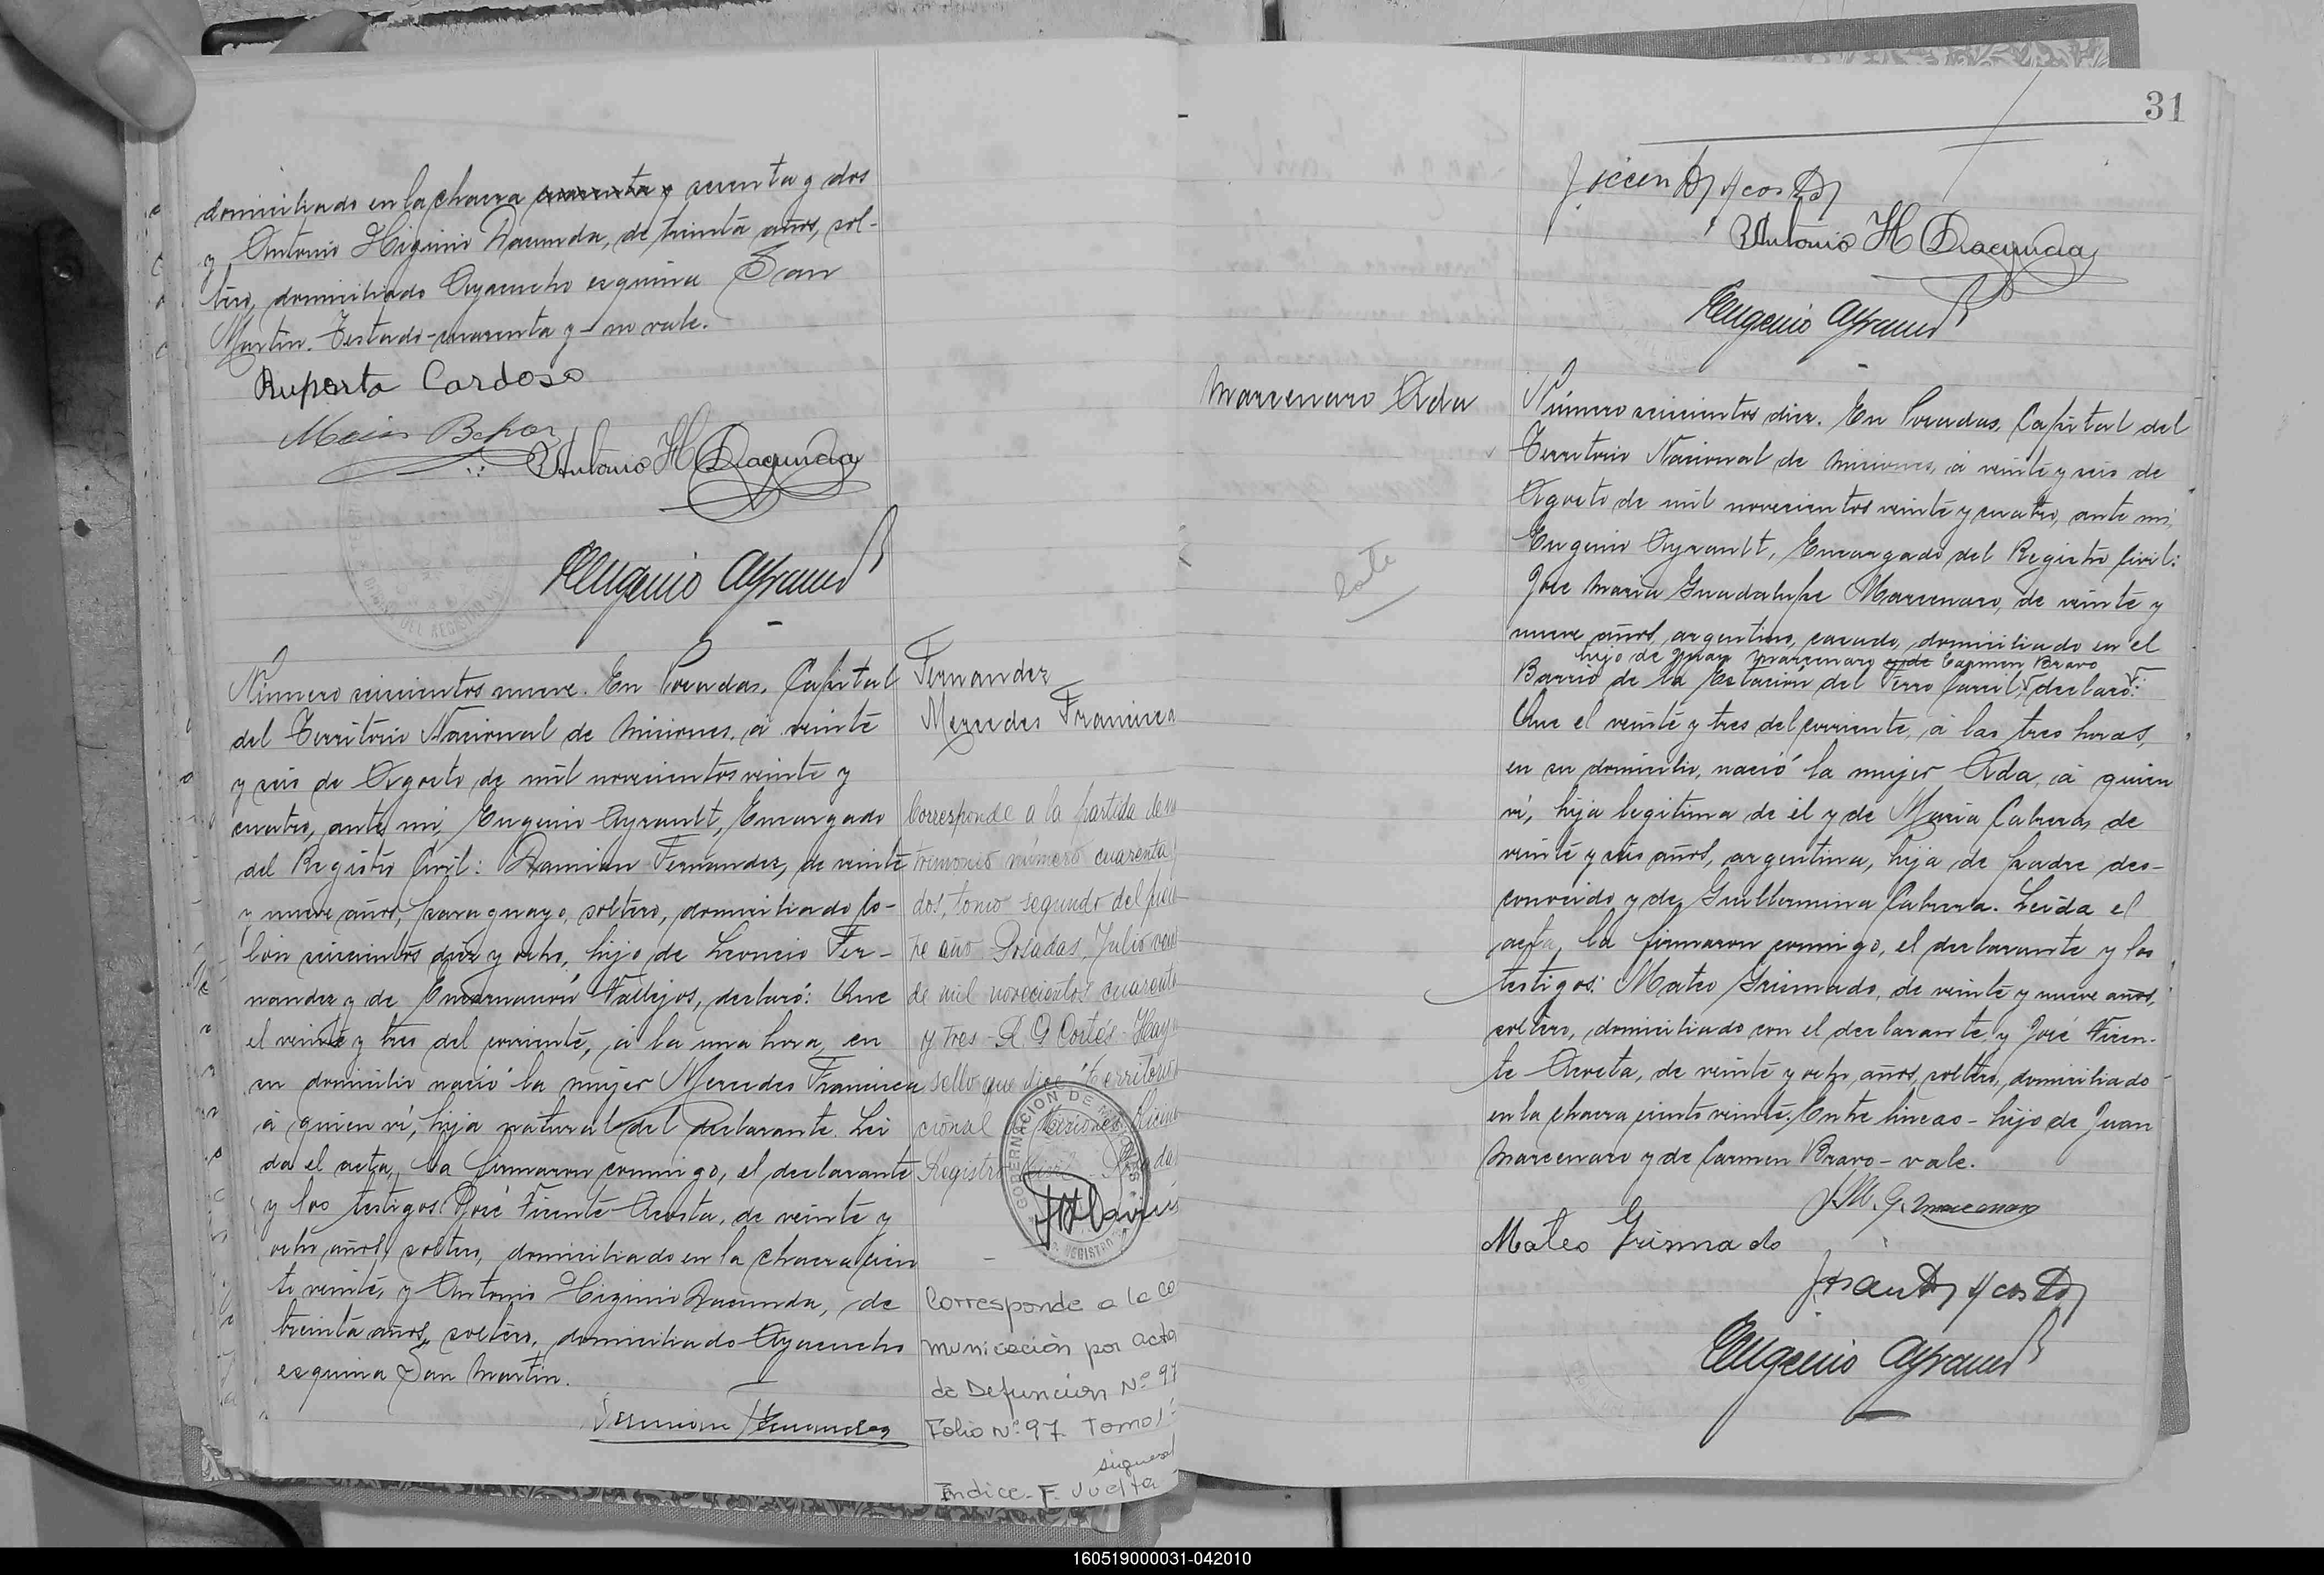 domiciliado en la chacra cuarenta y secenta y dos
y Antonio Higinio Dacunda, de treinta años, sol-
tero, domiciliado Ayacucho esquina San
Martin. Testado-cuarenta y-no vale.
Ruperto Cardoso
Antonio H Dacunda
Eugenio Ayrault
Número seiscientos nueve. En Posadas, Capital
del Territorio Nacional de Misiones, á veinte
y seis de Agosto de mil novecientos veinte y
cuatro, ante mi, Eugenio Ayrault, Encargado
del Registro Civil: Damian Fernandez, de veinte
y nueve años, paraguayo, soltero, domiciliado Co-
lón seiscientos diez y ocho, hijo de Leoncio Fer-
nandez y de Encarnación Vallejos, declaró: Que
el veinte y tres del corriente, á la una hora, en
su domicilio nació la mujer Mercedes Francisca
á quien ví, hija natural del declarante. Lei
da el acta, la firmaron conmigo, el declarante
y los testigos: José Vicente Acosta, de veinte y
ocho años, soltero, domiciliado en la chacra cien
to veinte, y Antonio Higinio Dacunda, de
treinta años, soltero, domiciliado Ayacucho
esquina San Martin.
Damian Fernandez
Fernandez
Mercedes Francisca
Corresponde a la partida de ma
trimonio número cuarenta y
dos, tomo segundo del presen
te año Posadas, Julio
de mil novecientos cuarenta
y tres - R. G Cortés - Hay u
sello que dice "Territorio
cional Misiones Oficina
Registro Civil - Posadas
GOBERNACION DE MISIONES
REGISTRO
Corresponde a la co
municación por acta
de Defunción Nº 97
Folio Nº 97 Tomo 1º
sigue al
Indice - F. vuelta
31
Vicente Acosta
Antonio H Dacunda
Eugenio Ayrault
Marcenaro Ada
Número seiscientos diez. En Posadas, Capital del
Territorio Nacional de Misiones, á veinte y seis de
Agosto de mil novecientos veinte y cuatro, ante mi,
Eugenio Ayrault, Encargado del Registro Civil:
José Maria Guadalupe Marcenaro, de veinte y
nueve años, argentino, casado, domiciliado en el
hijo de Juan Marcenaro y de Carmen Bravo
Barrio de la Estación del Ferro Carril, declaró:
Que el veinte y tres del corriente, á las tres horas,
en su domicilio, nació la mujer Ada, á quien
ví, hija legitima de él y de Maria Cabrera, de
veinte y seis años, argentina, hija de padre des-
conocido y de Guillermina Cabrera. Leida el
acta, la firmaron conmigo, el declarante y los
testigos: Mateo Grismado, de veinte y nueve años,
soltero, domiciliado con el declarante, y José Vicen-
te Acosta, de veinte y ocho años, soltero, domiciliado
en la chacra ciento veinte. Entre lineas - hijo de Juan
Marcenaro y de Carmen Bravo - vale.
J. M. G. Marcenaro
Mateo Grismado
Vicente Acosta
Eugenio Ayrault
160519000031-042010